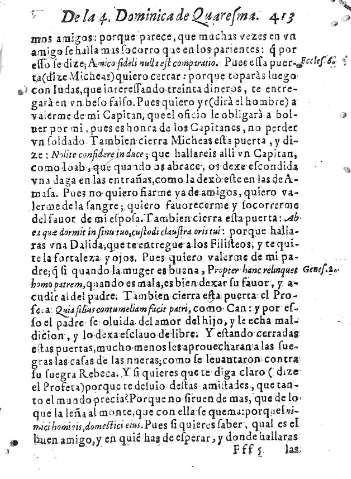 De la 4. Dominica de Quaresma. 413
mos amigos: porque parece, que muchas vezes en vn
amigo se halla mas socorro que en los parientes: q̃ por
esso se dize; Amico fideli nulla est comparatio. Pues esta puer-
Eccles. 6.
ta (dize Micheas) quiero cerrar: porque toparàs luego
con Iudas, que interessando treinta dineros, te entre-
garà en vn beso falso. Pues quiero yr (dirà el hombre) a
valerme de mi Capitan, que el oficio le obligarà a bol-
ner por mi, pues es honra de los Capitanes, no perder
vn soldado. Tambien cierra Micheas esta puerta, y di-
ze: Nolite confidere in duce; que hallareis alli vn Capitan,
como Ioab, que quando os abrace, os dexe escondida
vna daga en las entrañas, como la dexò este en las de A-
masa. Pues no quiero fiarme ya de amigos, quiero va-
lerme de la sangre; quiero fauorecerme y socorrerme
del fauor de mi esposa. Tambien cierra esta puerta: Ab
ea que dormit in sinu tuo, custodi claustra oris tui: porque halla-
ras vna Dalida, que te entregue a los Filisteos, y te qui-
te la fortaleza y ojos. Pues quiero valerme de mi pa-
dre; q̃ si quando la muger es buena, Propter hanc relinques
Genes. 2.
homo patrem, quando es mala, es bien dexar su fauor, y a-
cudir al del padre. Tambien cierra esta puerta el Pro-
feta: Quia filius contumeliam facit patri, como Can: y por es-
so el padre se oluida del amor del hijo, y le echa mal-
dicion, y lo dexa esclauo de libre. Y estando cerradas
estas puertas, mucho menos les aprouecharan a las sue-
gras las casas de las nueras; como se leuantaron contra
su suegra Rebeca. Y si quieres que te diga claro (dize
el Profeta) porque te desuio destas amistades, que tan-
to el mundo precia? Porque no siruen de mas, que de lo
que la leña al monte, que con ella se quema: porque ini-
mici hominis, domestici eius. Pues si quieres saber, qual es el
buen amigo, y en quiẽ has de esperar, y donde hallaras
Fff 5 las